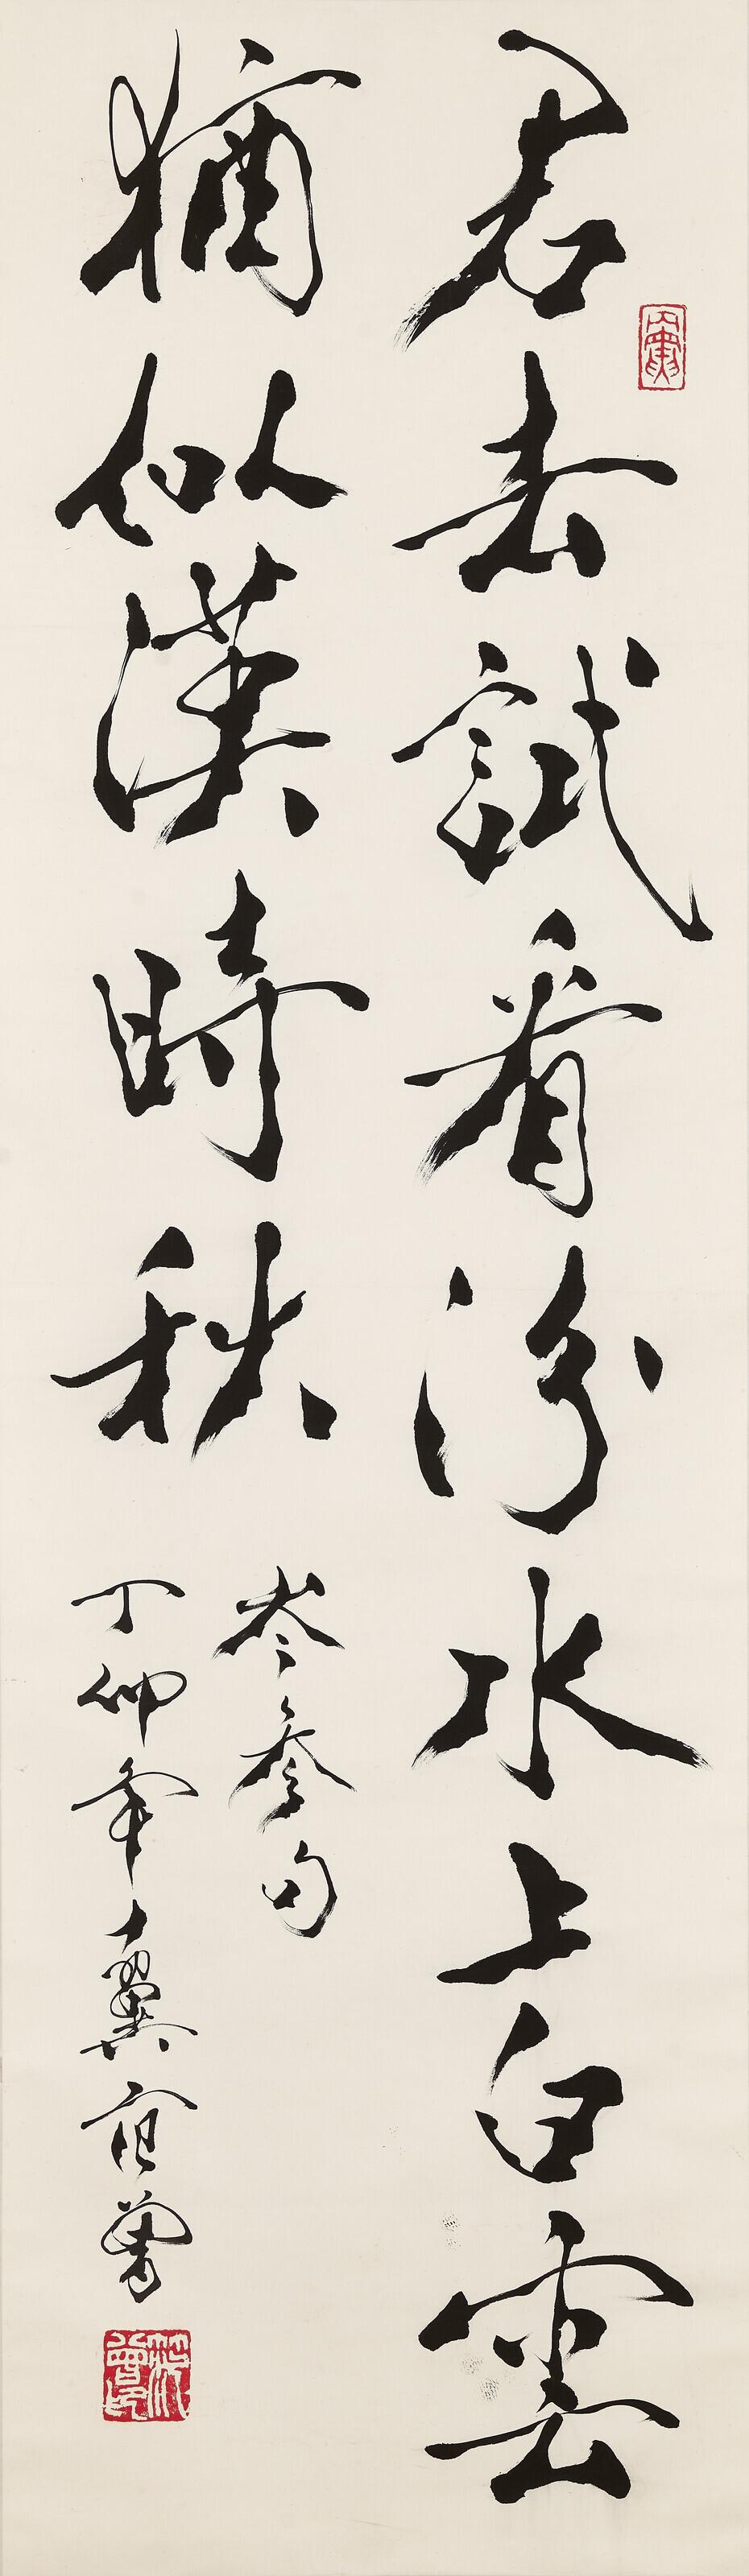 君去試看汾水上白雲
猶似漢時秋
岑參句
丁卯年十翼范曾
范曾印